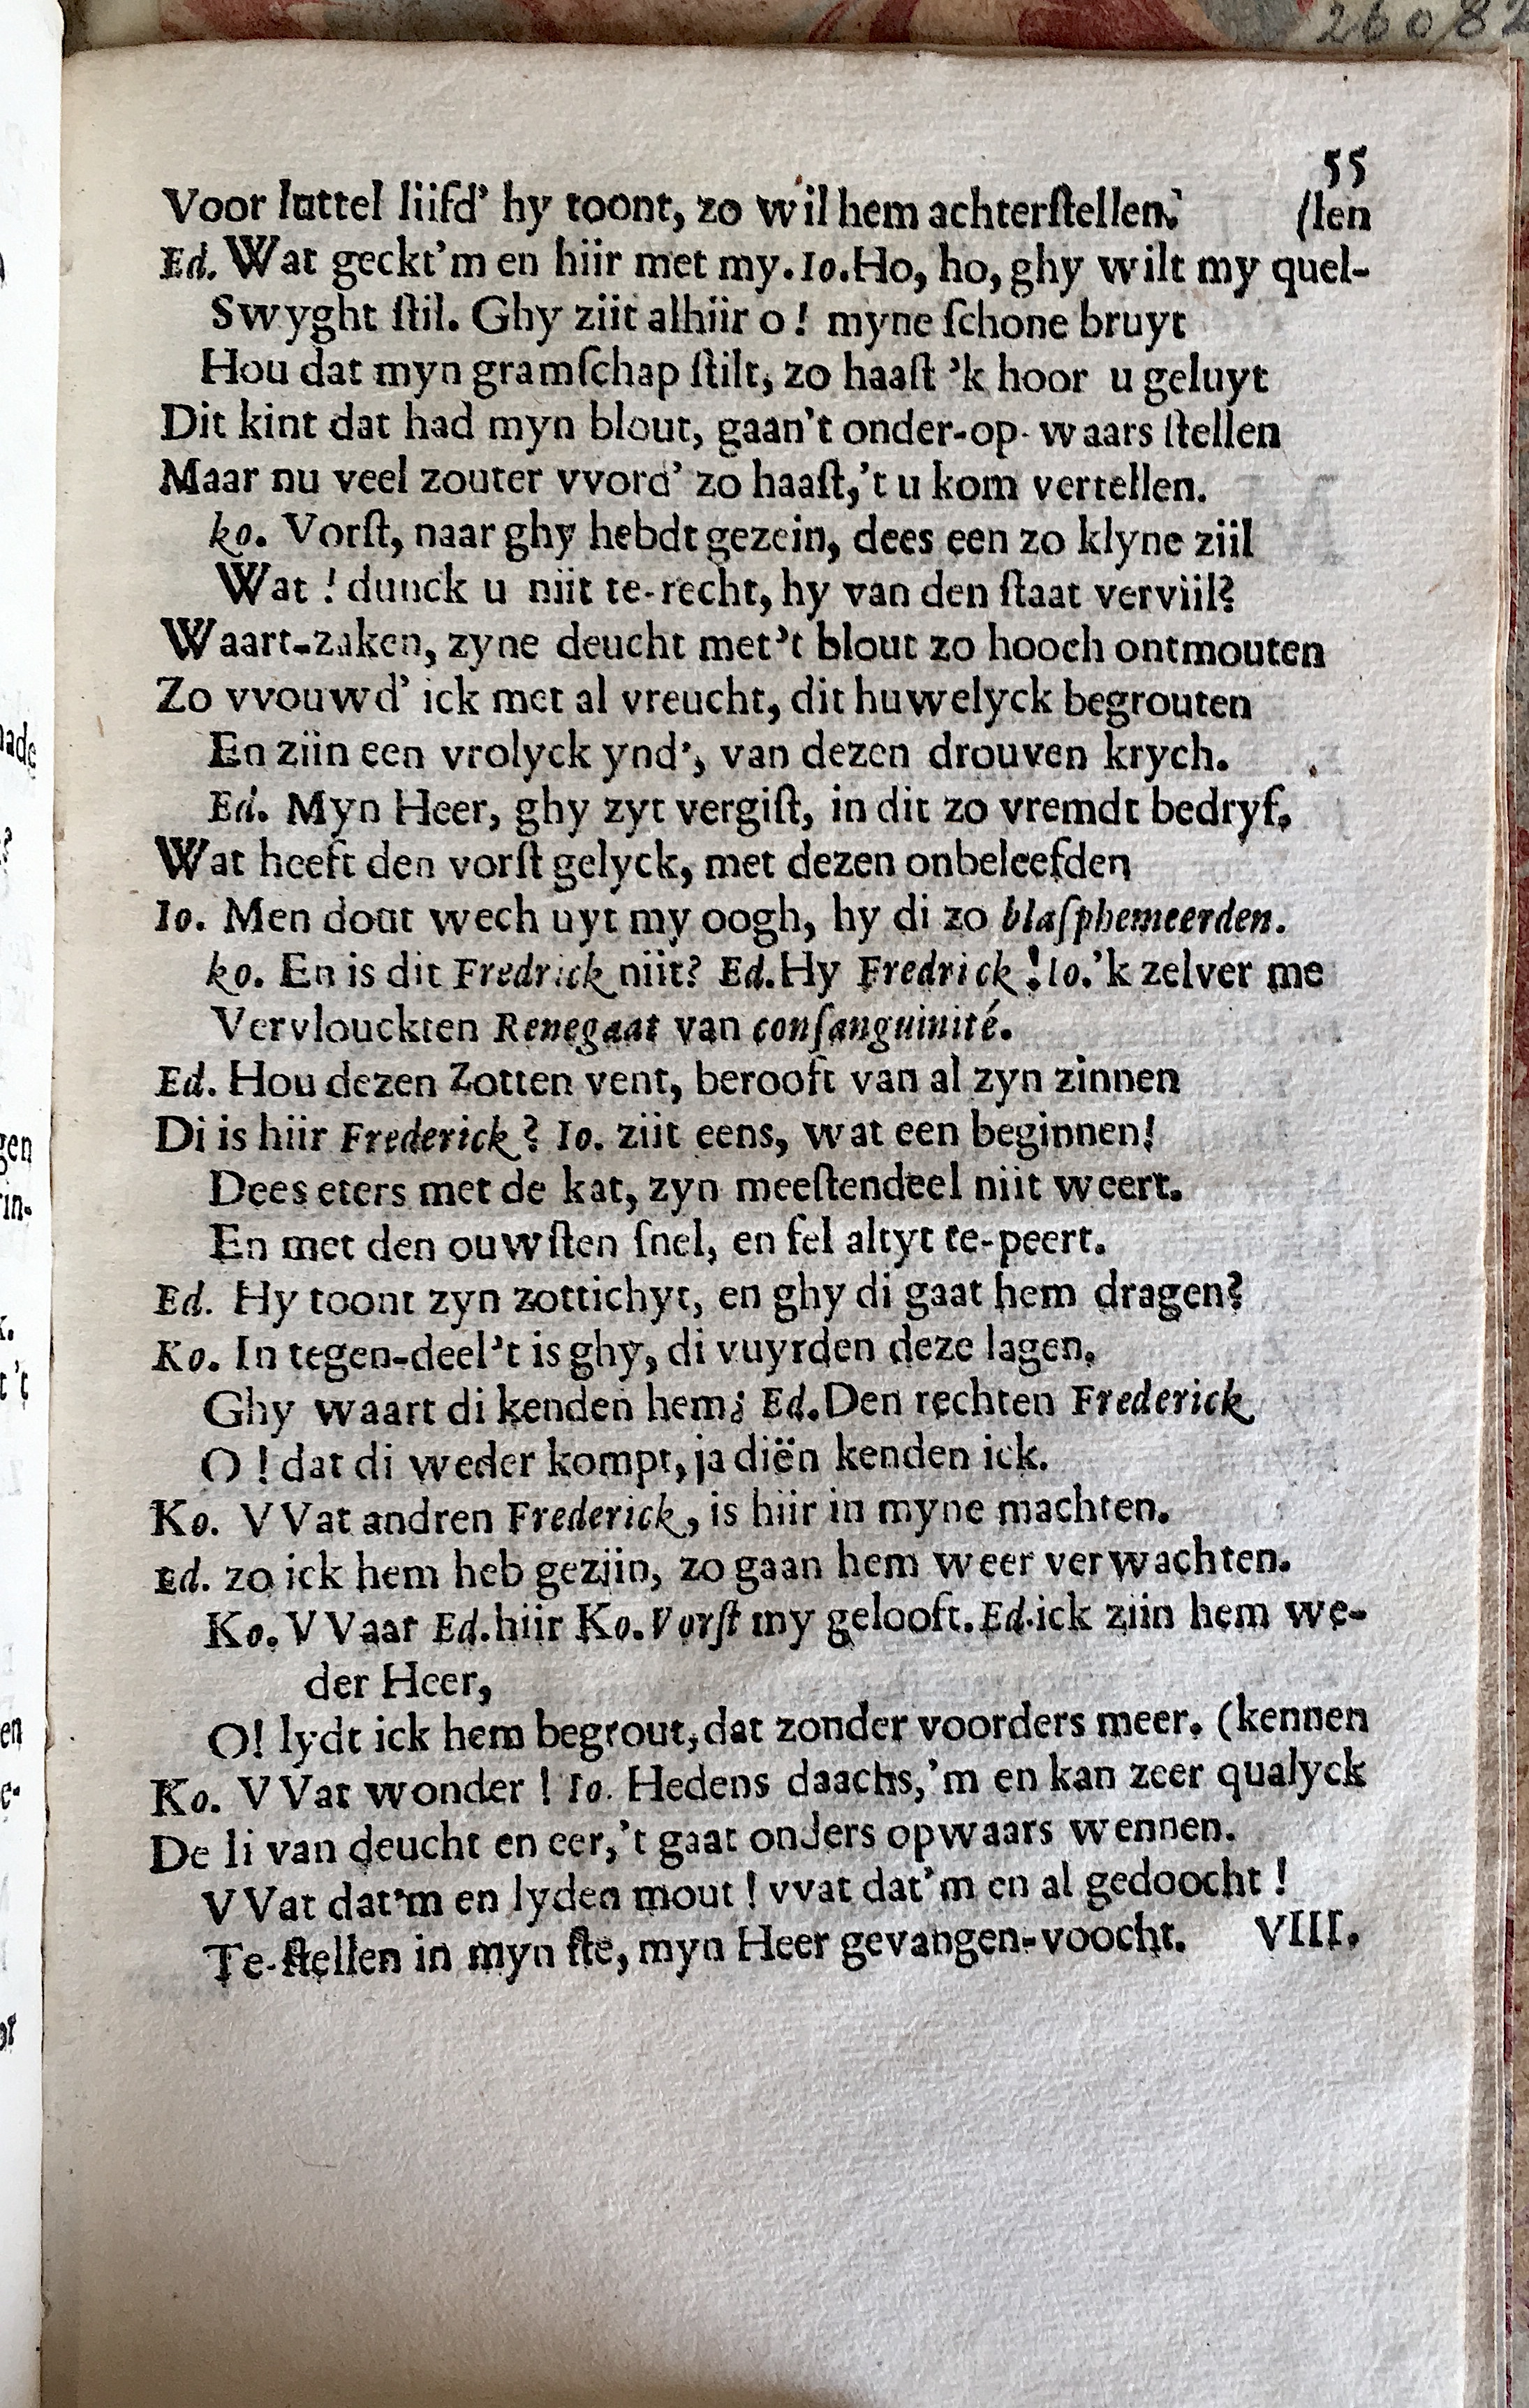 26082
55
Voor luttel liifd' hy toont, zo wil hem achterſtellen. (len
Ed. Wat geckt'm en hiir met my. Io. Ho, ho, ghy wilt my quel-
Swyght ſtil. Ghy ziit alhiir o! myne ſchone bruyt
Hou dat myn gramſchap ſtilt, zo haaſt 'k hoor u geluyt
Dit kint dat had myn blout, gaan't onder-op-waars ſtellen
Maar nu veel zouter vvord' zo haaſt,'t u kom vertellen.
ko. Vorſt, naar ghy hebdt gezein, dees een zo klyne ziil
Wat! dunck u niit te-recht, hy van den ſtaat verviil?
Waart-zaken, zyne deucht met't blout zo hooch ontmouten
Zo vvouwd' ick met al vreucht, dit huwelyck begrouten
En ziin een vrolyck ynd', van dezen drouven krych.
Ed. Myn Heer, ghy zyt vergiſt, in dit zo vremdt bedryf.
Wat heeft den vorſt gelyck, met dezen onbeleefden
Io. Men dout wech uyt my oogh, hy di zo blaſphemeerden.
ko. En is dit Fredrick niit? Ed. Hy Fredrick! Io.'k zelver me
Vervlouckten Renegaat van conſanguinité.
Ed. Hou dezen Zotten vent, berooft van al zyn zinnen
Di is hiir Frederick? Io. ziit eens, wat een beginnen!
Dees eters met de kat, zyn meeſtendeel niit weert.
En met den ouwſten ſnel, en fel altyt te-peert.
Ed. Hy toont zyn zottichyt, en ghy di gaat hem dragen?
Ko. In tegen-deel't is ghy, di vuyrden deze lagen.
Ghy waart di kenden hem; Ed. Den rechten Frederick
O! dat di weder kompt, ja diën kenden ick.
Ko. VVat andren Frederick, is hiir in myne machten.
Ed. zo ick hem heb geziin, zo gaan hem weer verwachten.
Ko. VVaar Ed. hiir Ko. Vorſt my gelooft. Ed. ick ziin hem we-
der Heer,
O! lydt ick hem begrout, dat zonder voorders meer. (kennen
Ko. VVat wonder! Io. Hedens daachs,'m en kan zeer qualyck
De li van deucht en eer,'t gaat onders opwaars wennen.
VVat dat'm en lyden mout! vvat dat'm en al gedoocht!
Te-ſtellen in myn ſte, myn Heer gevangen-voocht. VIII.